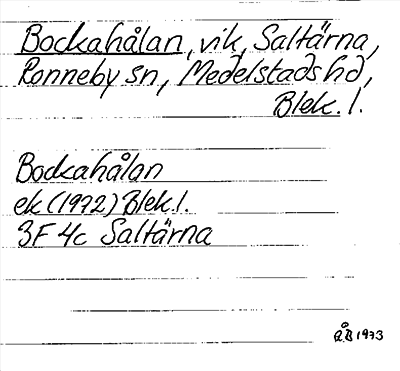 Bockahålan, vik, Saltärna,
Ronneby sn, Medelstads hd,
Blek. l.
Bockahålan
ek (1972) Blek. l.
3F 4c Saltärna
RÅB 1973